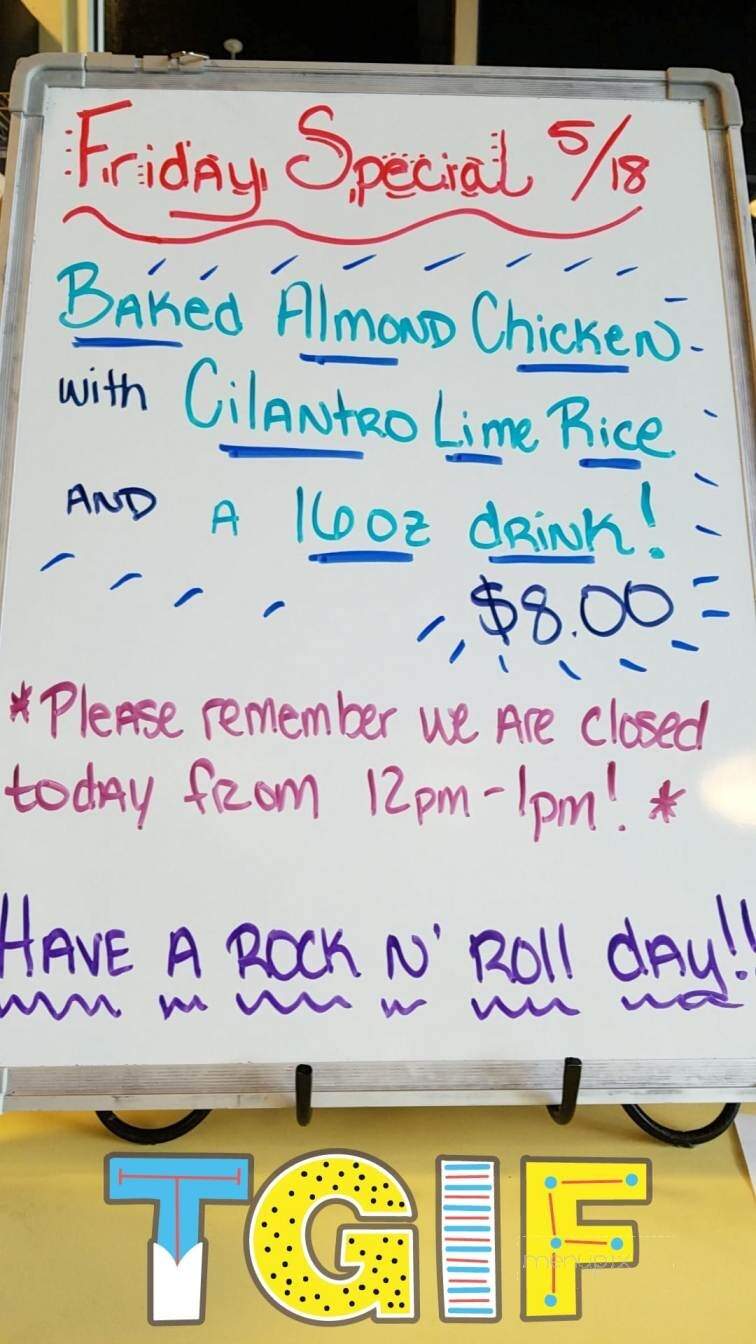 Friday Special 5/18
Baked Almond Chicken
with Cilantro Lime Rice
AND A 16oz drink!
$8.00
*Please remember we Are closed
today from 12pm-1pm! *
HAVE A ROCK N' ROll dAy!!
TGIF
menupix